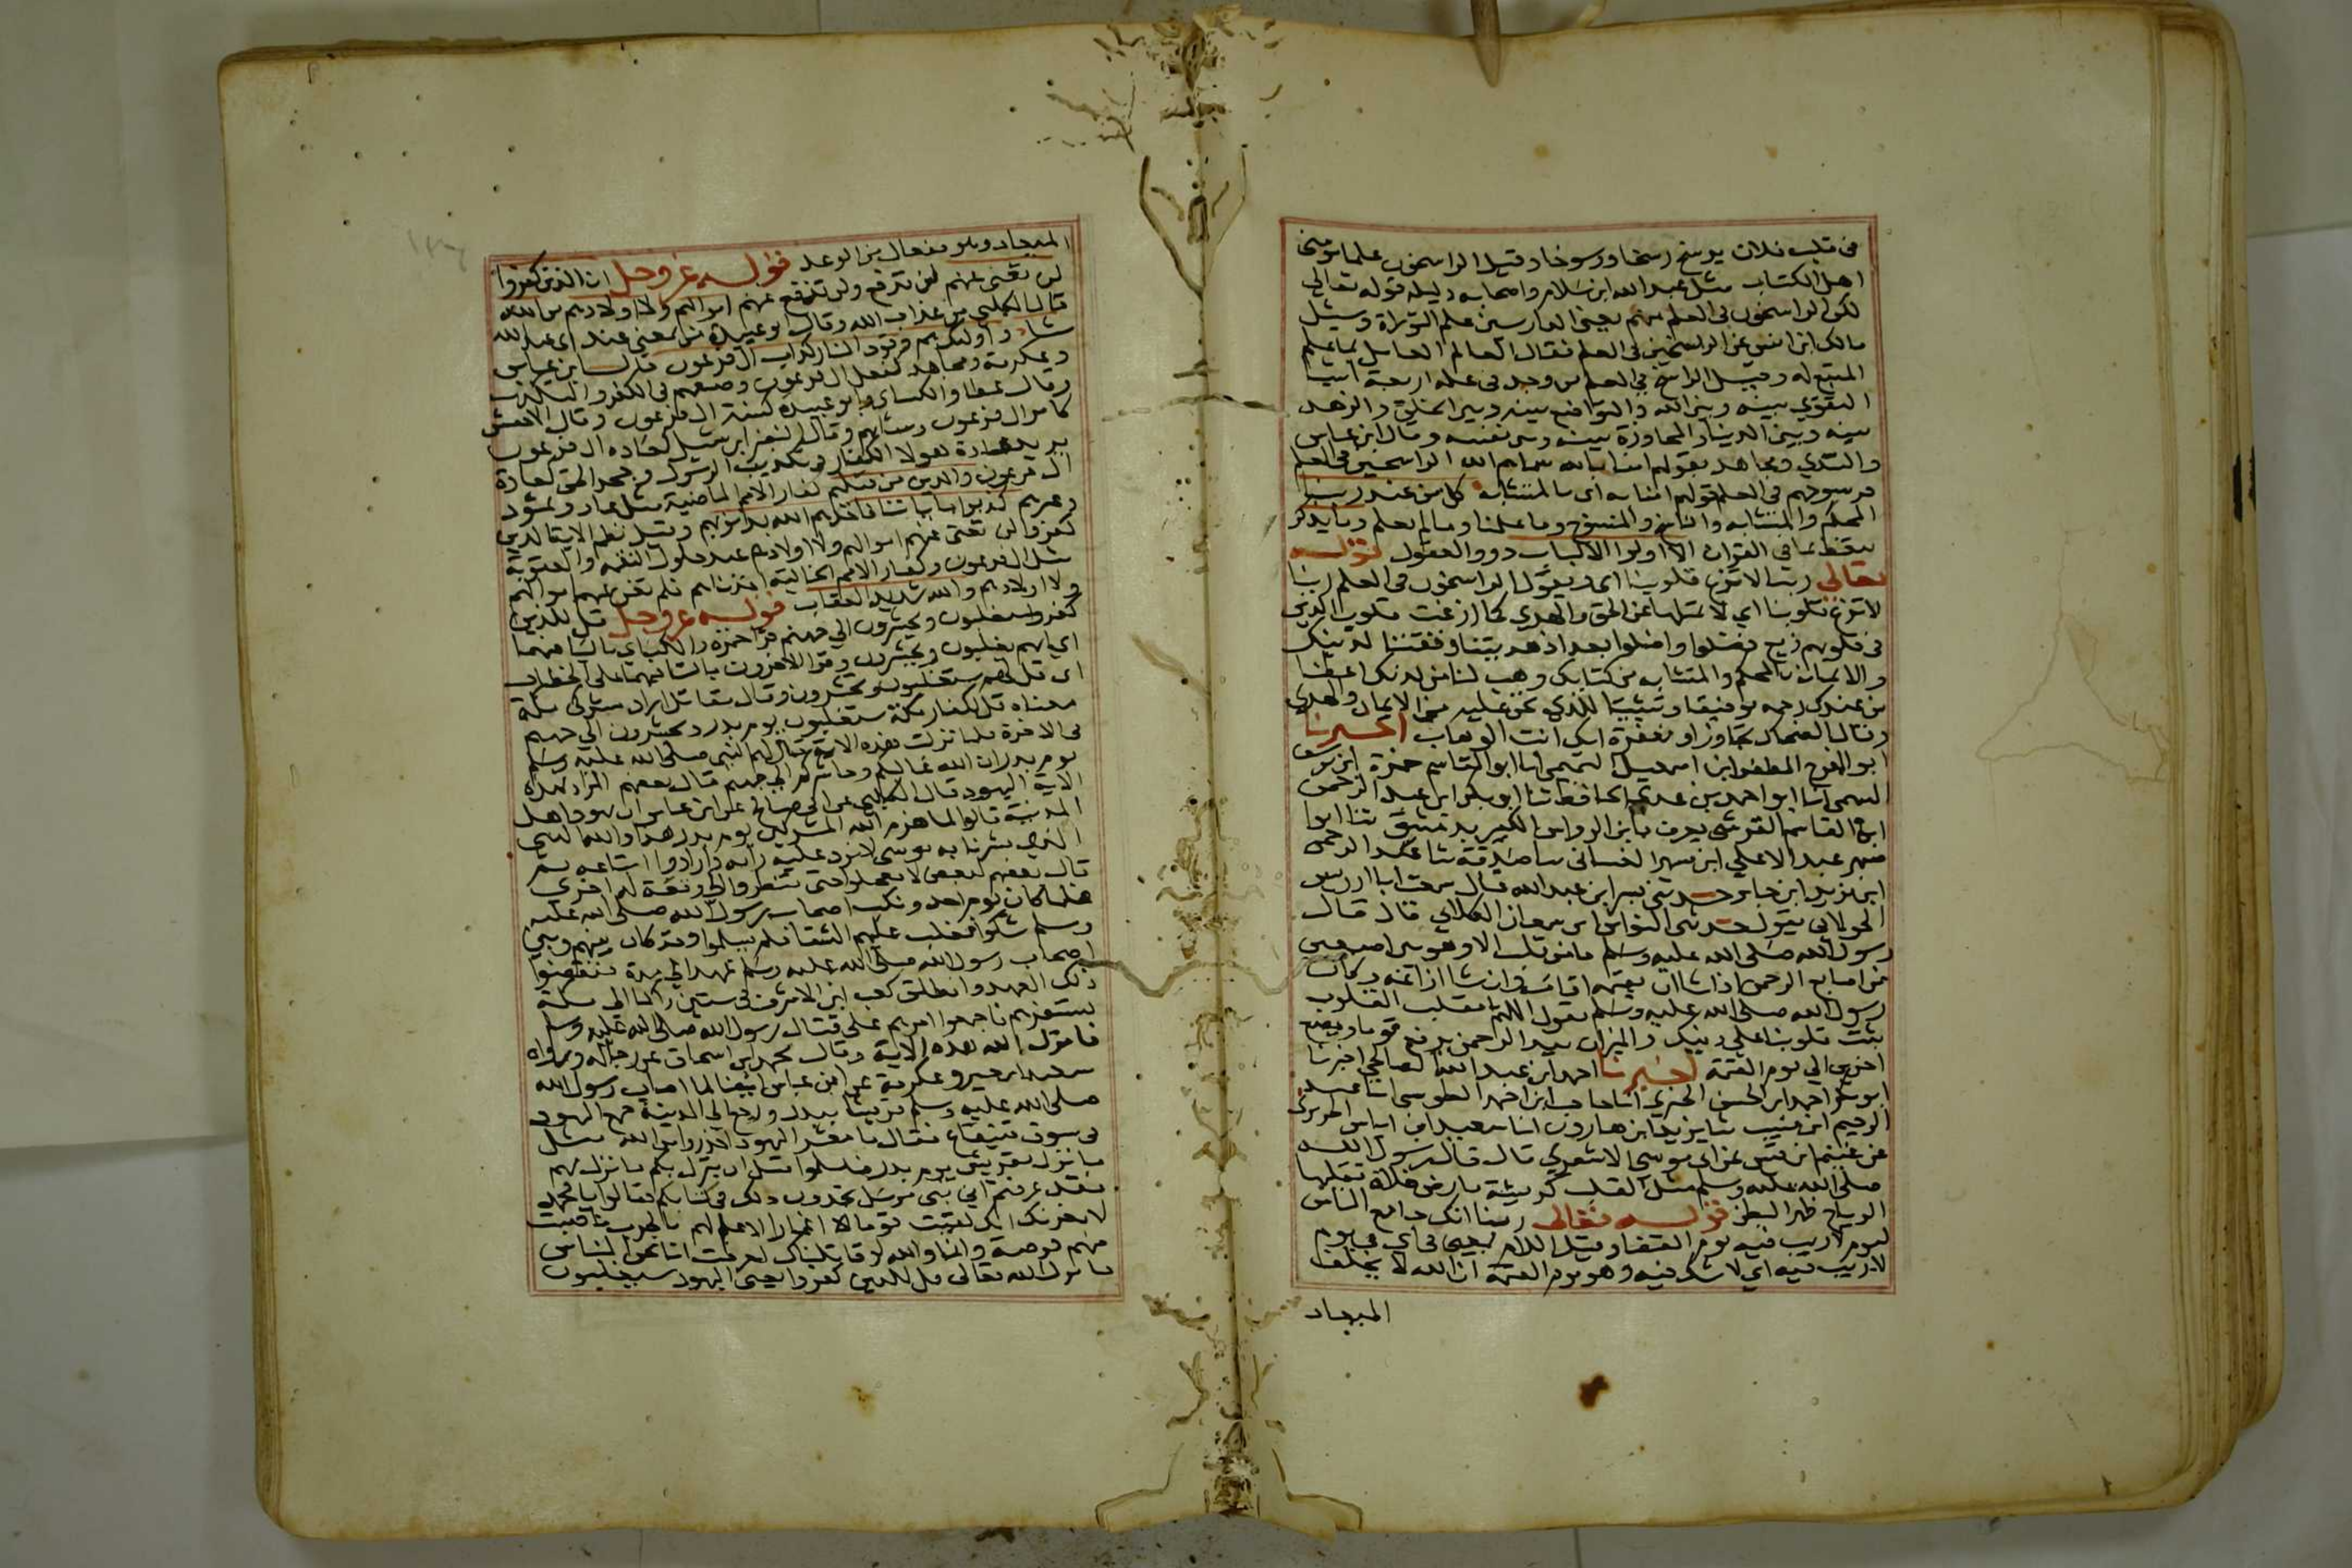 في قلب فلان يرسخ رسخا ورسوخا وقيل الراسخون علما مومني
اهل الكتاب مثل عبد الله ابن سلام واصحابه دليله قوله تعالى
لكن الراسخون في العلم منهم يعني الدارسين علم التوراة وسيل
مالك ابن انس عن الراسخين في العلم فقال العالم العامل بما علم
المتبع له وقيل الراسخ في العلم من وجد في علمه اربعة اشيا
التقوي بينه وبين الله والتواضع بينه وبين الخلق والزهد
بينه وبين الدنيا والمجاهدة بينه وبين نفسه وقال ابن عباس
والسدي ومجاهد بقولهم امنا به سماهم الله الراسخين في العلم
فرسوخهم في العلم قولهم امنا به اى بالمتشابه كل من عند ربنا
المحكم والمتشابه والناسخ والمنسوخ وما علمنا وما لم نعلم وما يذكر
يتعظ بما في القران الا اولوا الالباب ذووا العقول قوله
تعالي ربنا لا تزغ قلوبنا اى ويقول الراسخون في العلم ربنا
لا تزغ قلوبنا اي لا تملها عن الحق والهدي كما ازغت قلوب الذين
في قلوبهم زيغ فضلوا واضلوا بعد اذ هديتنا وفقتنا لدينك
والايمان بالمحكم والمتشابه من كتابك وهب لنا من لدنك اعطنا
من عندك رحمه توفيقا وتثبيتا للذي نحن عليه من الايمان والهدي
وقال الضحاك تجاوزا ومغفرة انك انت الوهاب اخبرنا
ابو الفرج المظفر ابن اسمعيل التميمي انا ابو القاسم حمزة ابن يوسف
السهمى انا ابو احمد بن عدي الحافظ ثنا ابو بكر ابن عبد الرحمن
ابن القاسم القرشي يعرف بابن الرواس الكبير بدمشق ثنا ابو
مسهر عبد الاعلي ابن مسهر الغساني ثنا صدقة ثنا عبد الرحمن
ابن يزيد ابن جابر حدثني بسر ابن عبد الله قال سمعت ابا ادريس
الخولاني يقول حدثنى النواس ابن سمعان الكلابي قال قال
رسول الله صلى الله عليه وسلم ما من قلب الا وهو بين اصبعين
من اصابع الرحمن اذا شا ان يقيمه اقامه وان شا ازاغه وكان
رسول الله صلى الله عليه وسلم يقول اللهم مقلب القلوب
ثبت قلوبنا على دينك والميزان بيد الرحمن يرفع قوما ويضع
اخرين الي يوم القيمة اخبرنا احمد ابن عبد الله الصالحي اخبرنا
ابو بكر احمد ابن الحسن الحيري انا حاجب ابن احمد الطوسي انا عبد
الرحيم ابن منيب ثنا يزيد ابن هارون انا سعيد ابن اياس الجريري
عن غنيم ابن قيس عن ابى موسي الاشعري قال قال رسول الله
صلى الله عليه وسلم مثل القلب كريشة بارض فلاة تقلبها
الرياح ظهرا لبطن قوله تعالى ربنا انك جامع الناس
ليوم لا ريب فيه يوم القضا وقيل اللام بمعنى في اى في يوم
لا ريب فيه اي لا شك فيه وهو يوم القيمة ان الله لا يخلف
الميعاد
الميعاد وهو مفعال من الوعد قوله عز وجل ان الذين كفروا
لن تغني عنهم لن تنفع ولن تدفع عنهم اموالهم ولا اولادهم من الله
قال الكلبي من عذاب الله وقال ابو عبيدة من بمعني عند اى عند الله
شيا واولئك هم وقود النار كداب ال فرعون قال ابن عباس
وعكرمة ومجاهد كفعل ال فرعون وصنعهم في الكفر والتكذيب
وقال عطا والكساى وابو عبيدة كسنة ال فرعون وقال الاخفش
كامر ال فرعون وشانهم وقال النضر ابن شميل كعاده ال فرعون
يريد عادة هولا الكفار في تكذيب الرسول وجحد الحق كعادة
ال فرعون والذين من قبلهم كفار الامم الماضية مثل عاد وثمود
وغيرهم كذبوا باياتنا فاخذهم الله بذنوبهم وقيل نظم الاية ان الذين
كفروا لن تغني عنهم اموالهم ولا اولادهم عند حلول النقمة والعقوبة
مثل ال فرعون وكفار الامم الخالية اخذناهم فلم تغن عنهم اموالهم
ولا اولادهم والله شديد العقاب قوله عز وجل قل للذين
كفروا ستغلبون وتحشرون الي جهنم قرا حمزه والكساي باليا فيهما
اي انهم يغلبون ويحشرون وقرا الاخرون بالتا فيهما على الخطاب
اى قل لهم ستغلبون وتحشرون وقال مقاتل اراد مشركى مكة
معناه قل لكفار مكة ستغلبون يوم بدر وتحشرون الي جهنم
في الاخرة فلما نزلت هذه الاية قال لهم النبي صلى الله عليه وسلم
يوم بدر ان الله غالبكم وحاشركم الي جهنم قال بعضهم المراد بهذه
الاية اليهود قال الكلبي عن ابي صالح عن ابن عباس ان يهود اهل
المدينة قالوا لما هزم الله المشركين يوم بدر هذا والله النبي
الذي بشرنا به موسى لا ترد عليه راية وارادوا اتباعه ثم
قال بعضهم لبعض لا تعجلوا حتى تنظروا الي وقعة له اخرى
فلما كان يوم احد ونكب اصحاب رسول الله صلى الله عليه
وسلم شكوا فغلب عليهم الشقا فلم يسلموا وقد كان بينهم وبين
اصحاب رسول الله صلى الله عليه وسلم عهد الي مدة فنقضوا
ذلك العهد وانطلق كعب ابن الاشرف في ستين راكبا الى مكة
يستفزهم فاجمعوا امرهم على قتال رسول الله صلى الله عليه وسلم
فانزل الله هذه الاية وقال محمد ابن اسحاق عن رجاله ورواه
سعيد ابن جبير وعكرمة عن ابن عباس ايضا لما اصاب رسول الله
صلى الله عليه وسلم قريشا ببدر ورجع الي المدينة جمع اليهود
في سوق قينقاع فقال يا معشر اليهود احذروا من الله مثل
ما نزل بقريش يوم بدر فاسلموا قبل ان ينزل بكم ما نزل بهم
فقد عرفتم اني نبي مرسل تجدون ذلك في كتابكم فقالوا يا محمد
لا يغرنك انك لقيت قوما اغمارا لا علم لهم بالحرب فاصبت
منهم فرصة وانا والله لو قاتلناك لعرفت انا نحن الناس
فانزل الله تعالى قل للذين كفروا يعنى اليهود سيغلبون